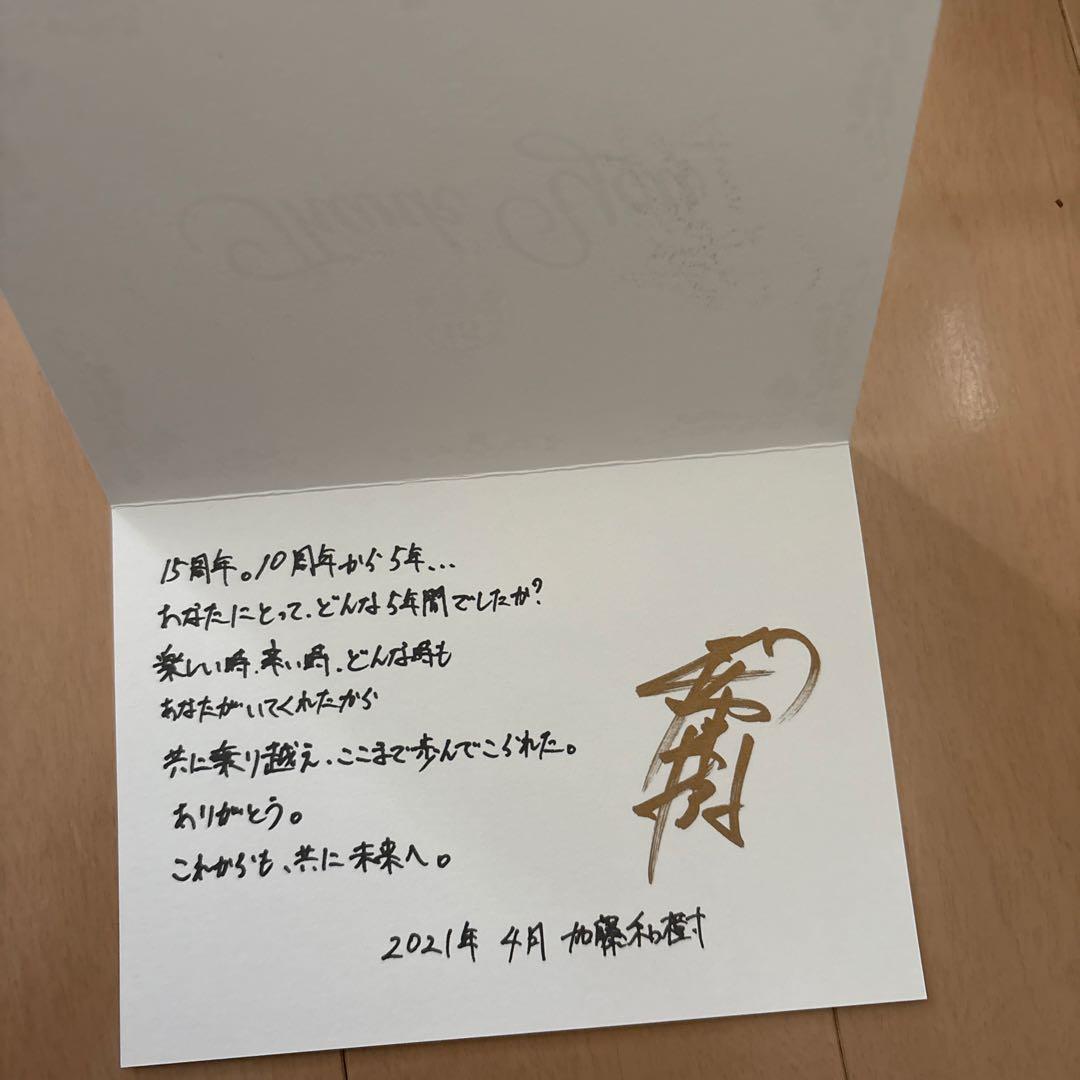 Thank You
15周年。10周年から5年...
あなたにとって、どんな5年間でしたか?
楽しい時、辛い時、どんな時も
あなたがいてくれたから
共に乗り越え、ここまで歩んでこられた。
ありがとう。
これからも、共に未来へ。
2021年 4月 加藤和樹